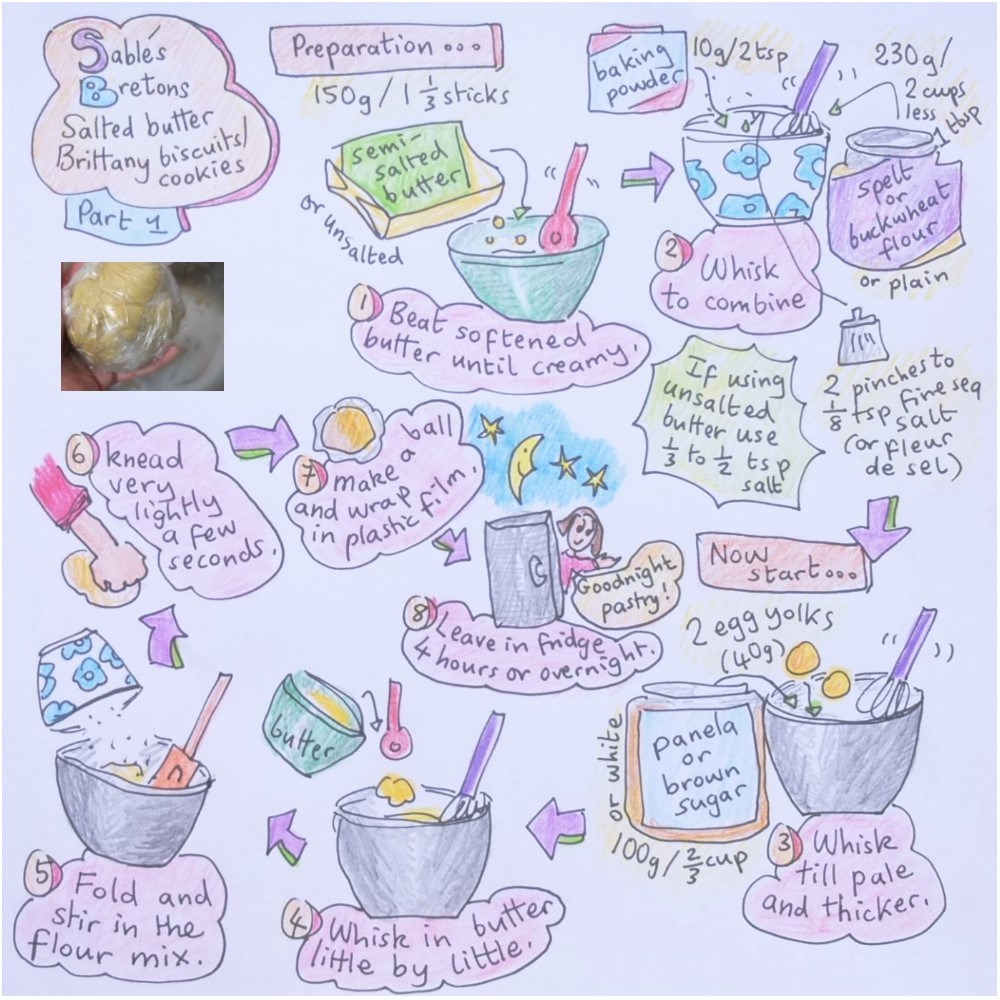 Sablés
Bretons
Salted butter
Brittany biscuits/
cookies
Part 1
Preparation...
150g / 1 1/3 sticks
semi-
salted
butter
or unsalted
1 Beat softened
butter until creamy.
baking
powder
10g/2tsp
230g/
2 cups
less
1 tbsp
spelt
or
buckwheat
flour
or plain
2 Whisk
to combine
2 pinches to
1/8 tsp fine sea
salt
(or fleur
de sel)
If using
unsalted
butter use
1/3 to 1/2 tsp
salt
Now
start...
2 egg yolks
(40g)
panela
or
brown
sugar
or white
100g / 2/3 cup
3 Whisk
till pale
and thicker.
butter
4 Whisk in butter
little by little.
5 Fold and
stir in the
flour mix.
6 knead
very
lightly
a few
seconds.
7 make a ball
and wrap
in plastic film.
Goodnight
pastry!
8 Leave in fridge
4 hours or overnight.